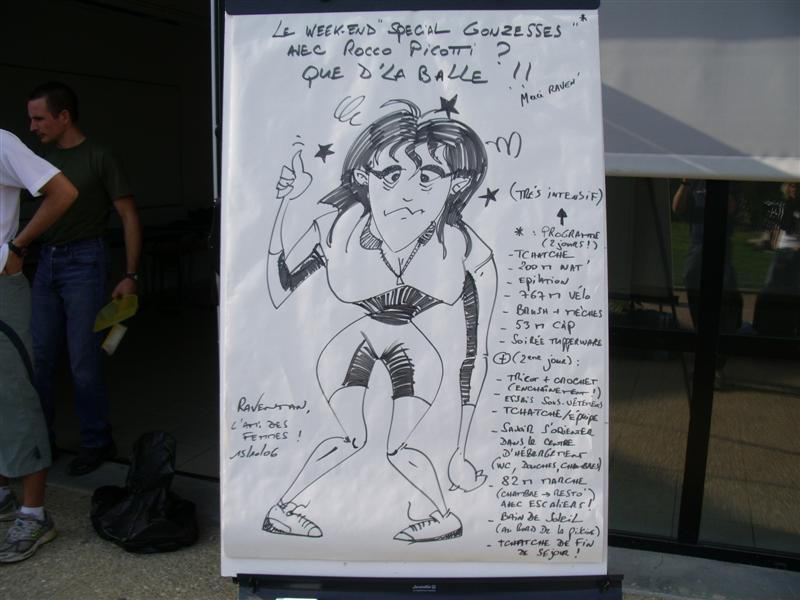 LE WEEK-END "SPECIAL GONZESSES" *
AVEC ROCCO PICOTTI ?
QUE D'LA BALLE !!
(TRÈS INTENSIF)
* : PROGRAMME
(2 JOURS !)
- TCHATCHE
- 200 M NAT'
- EPILATION
- 767 M VÉLO
- BRUSH + MÈCHES
- 53 M CÀP
- SOIRÉE TUPPERWARE
+ (2ème JOUR) :
- TRICOT + CROCHET
(ENCHAINEMENT !)
- ESSAIS SOUS-VÊTEMENTS
- TCHATCHE/ÉQUIPE
- SAVOIR S'ORIENTER
DANS LE CENTRE
D'HÉBERGEMENT
(WC, DOUCHES, CHAMBRES)
- 82 M MARCHE
(CHAMBRE → RESTO)
AVEC ESCALIERS !
- BAIN DE SOLEIL
(AU BORD DE LA PISCINE)
- TCHATCHE DE FIN
DE SÉJOUR !
L'AMI DES
FEMMES !